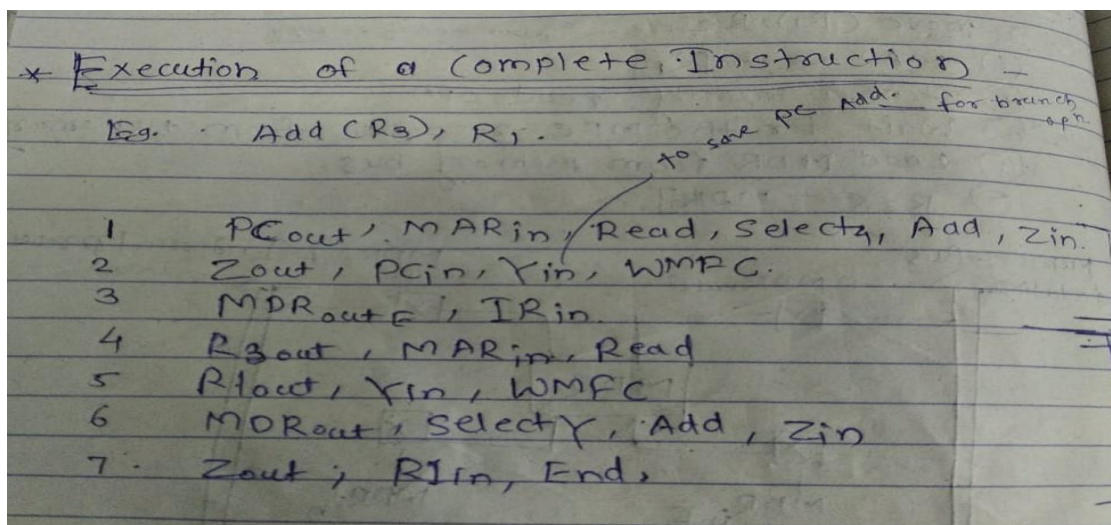 * Execution of a Complete Instruction -
Eg. Add (R3), R1.
to save PC Add. for branch opn.
1 PCout, MARin, Read, Select4, Add, Zin.
2 Zout, PCin, Yin, WMFC.
3 MDRoutE, IRin.
4 R3out, MARin, Read
5 R1out, Yin, WMFC
6 MDRout, SelectY, Add, Zin
7. Zout, R1in, End.